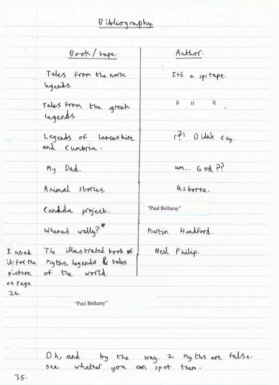 Bibliography
Book/tape. Author.
Tales from the norse Its a spitape.
legends.
Tales from the greek " " " .
legends
Legends of Lancashire
and Cumbria.
My Dad. um... God??
Animal stories. Usborne.
Candida project. "Paul Bethany"
Wheres wally?* Martin Handford.
I used The illustrated book of Neil Philip.
it for the myths legends & tales
picture of the world.
on page
26.
"Paul Bethany"
Oh, and by the way, 2 myths are false.
see whether you can spot them.
35.